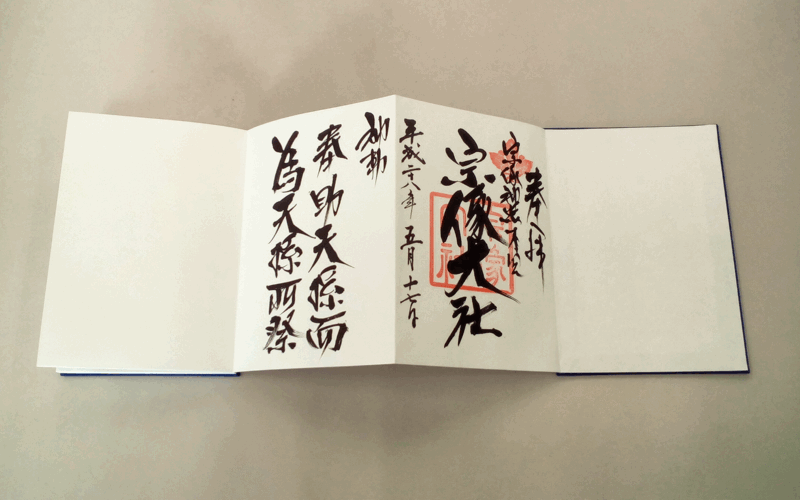 奉拝
宗像大社
平成二十八年 五月十七日
神勅
奉助天孫而
為天孫所祭